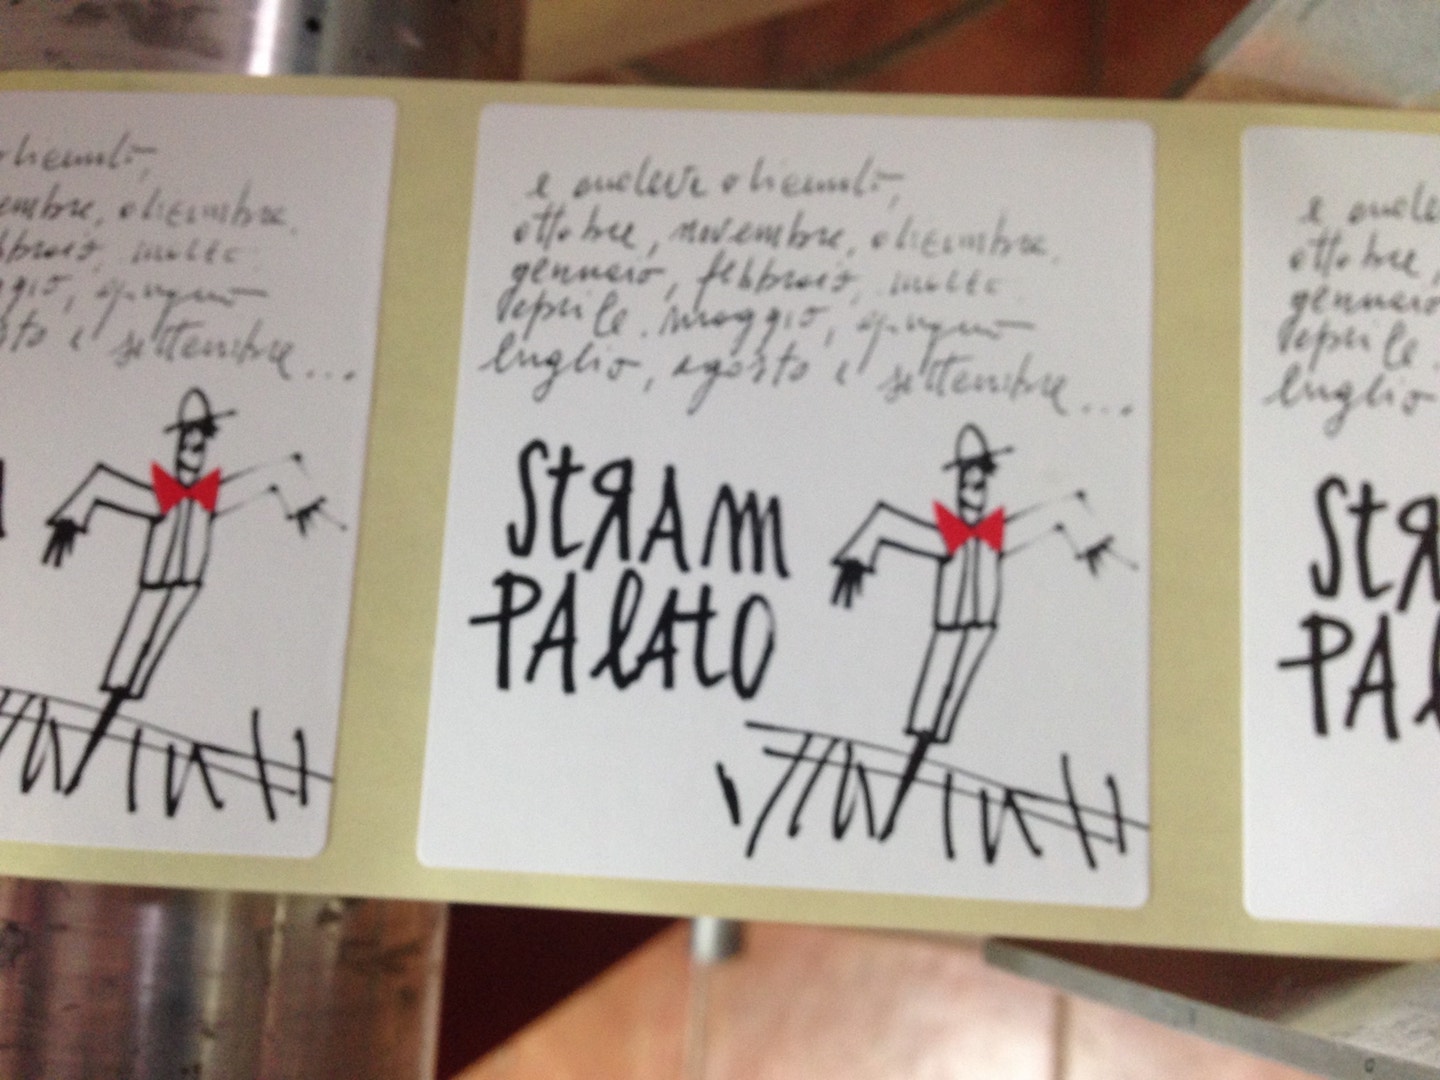 hianti,
embre, dicembre.
bbraio, marzo
ggio, giugno
sto e settembre...
e andava avanti,
ottobre, novembre, dicembre.
gennaio, febbraio, marzo
aprile. maggio, giugno
luglio, agosto e settembre...
StRAM
PAlAtO
e
ottobre,
gennaio
aprile.
luglio
St
PAl